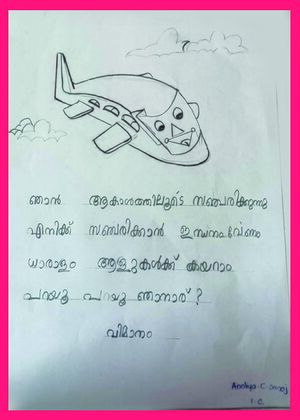 ഞാൻ ആകാശത്തിലൂടെ സഞ്ചരിക്കുന്നു
എനിക്ക് സഞ്ചരിക്കാൻ ഇന്ധനം വേണം
ധാരാളം ആളുകൾക്ക് കയറാം
പറയൂ പറയൂ ഞാനാര് ?
വിമാനം
I. C.